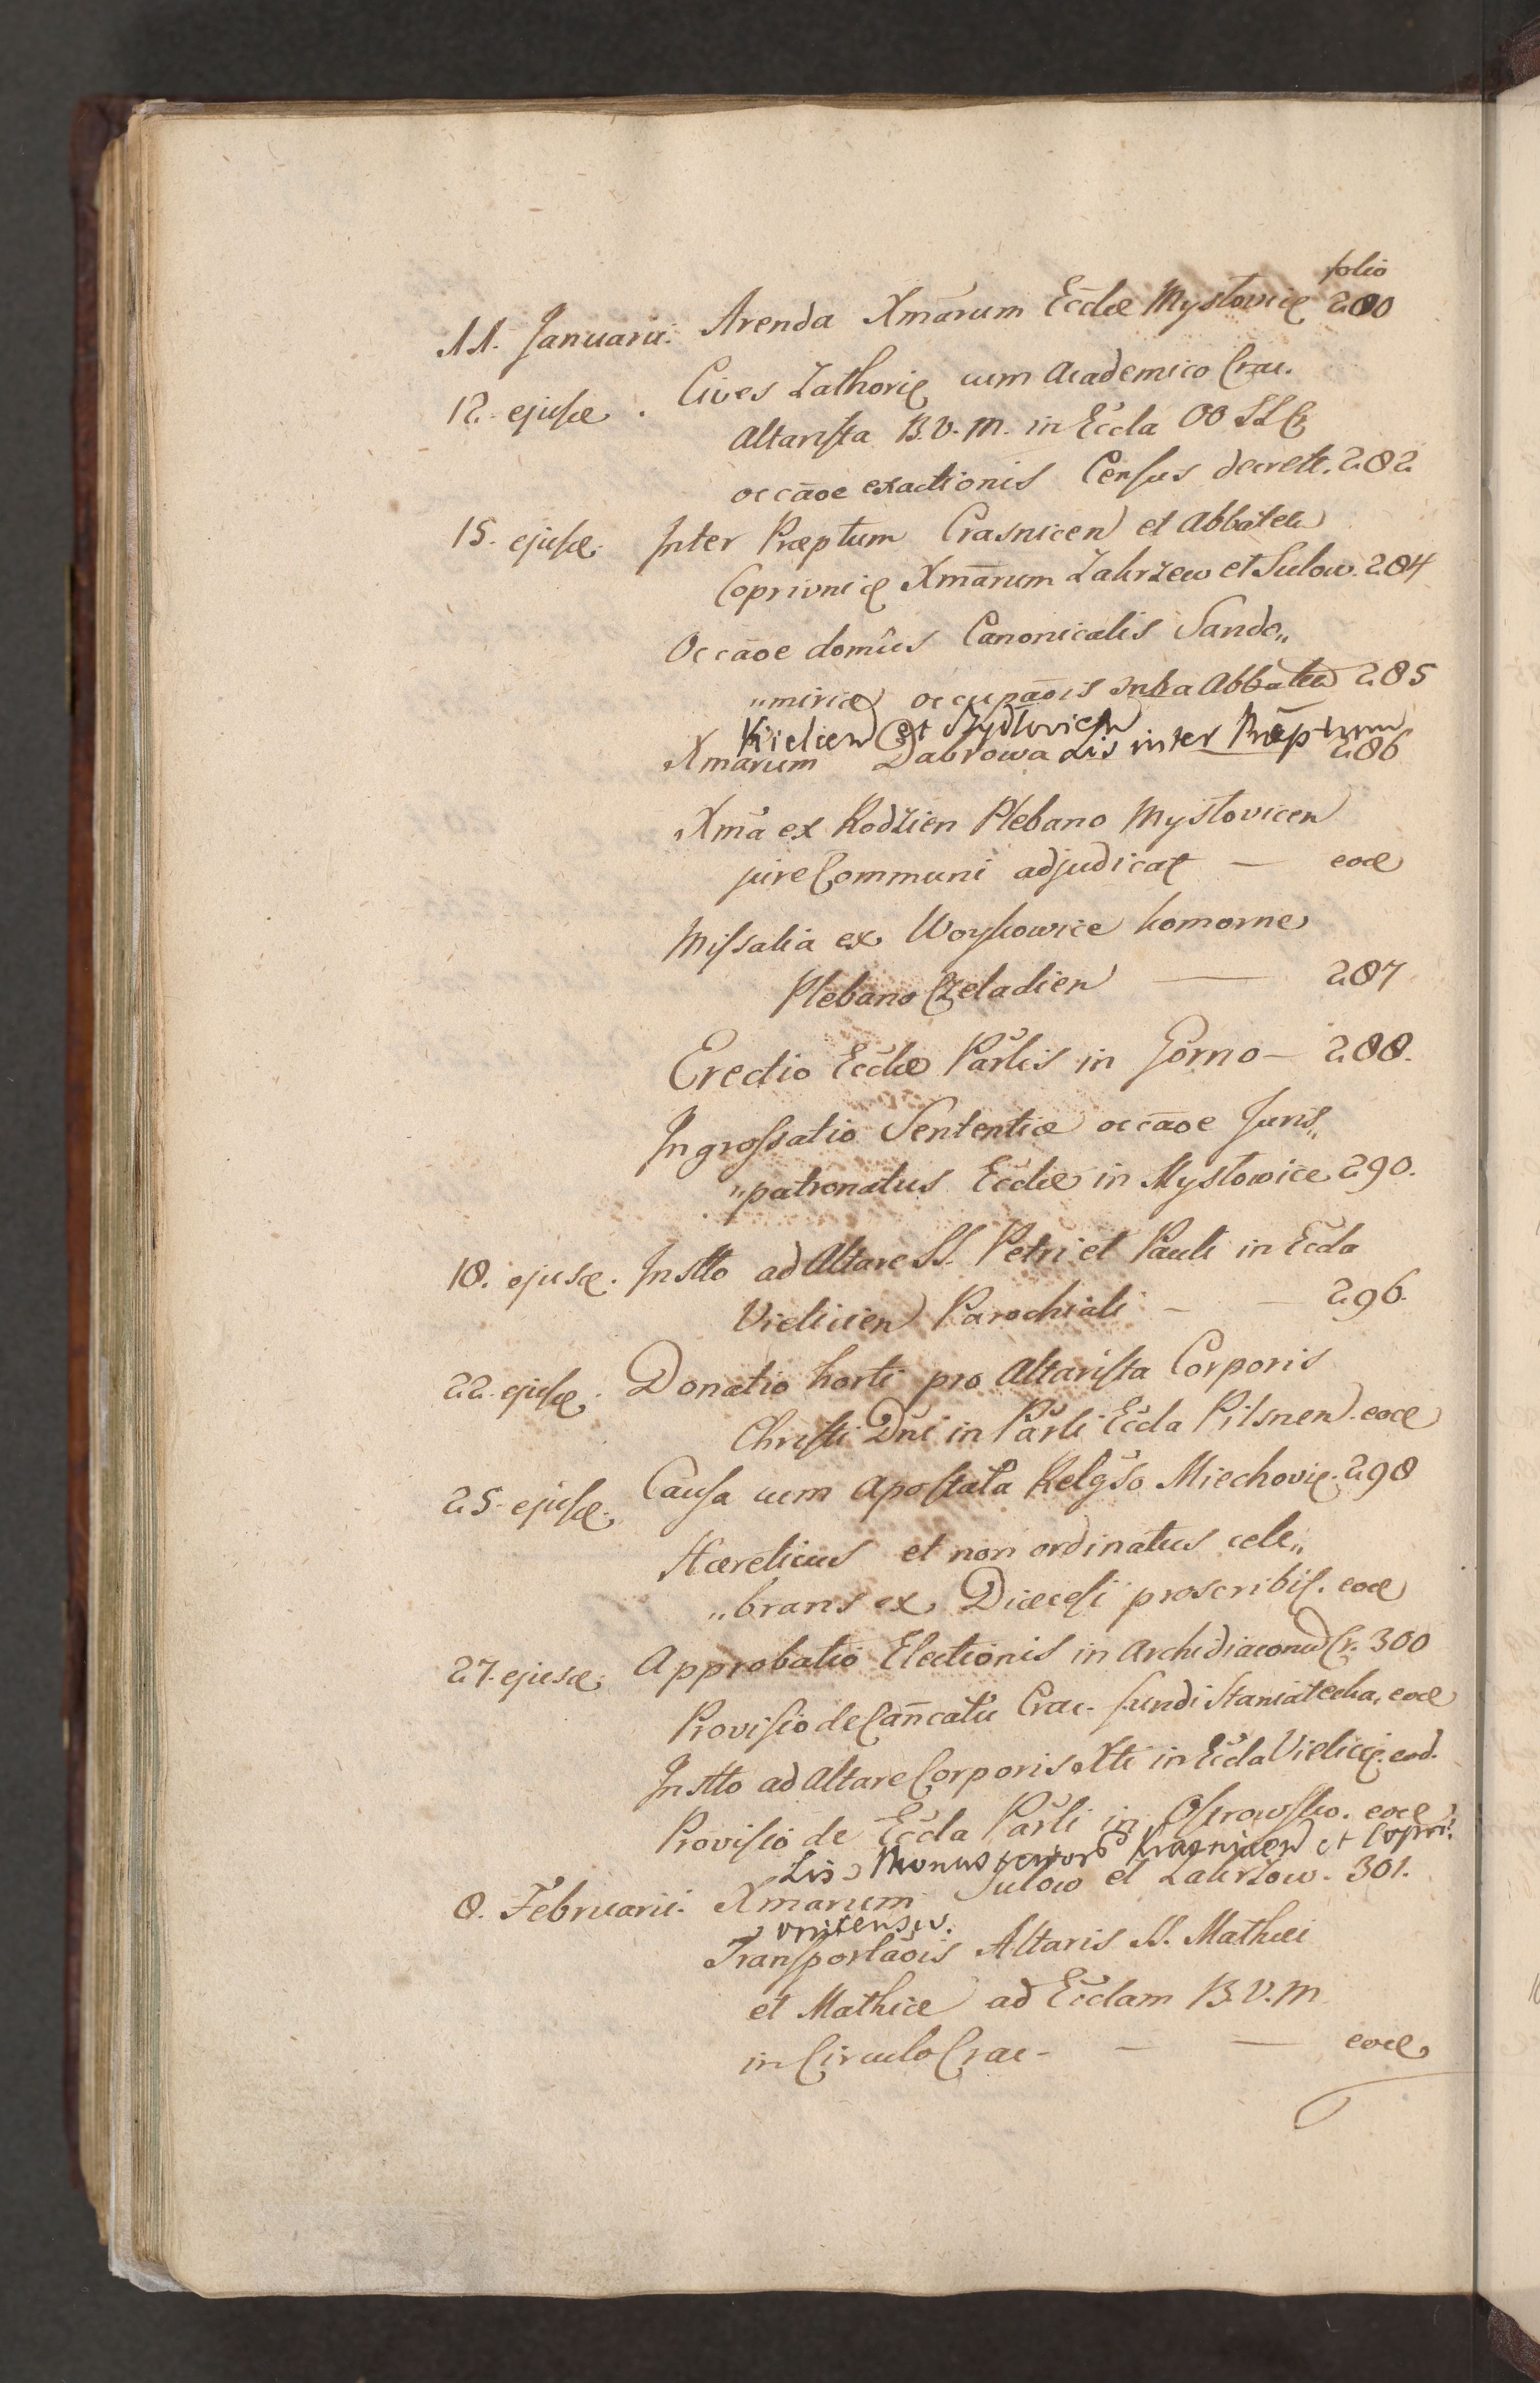 folio
11. Januarii. Arenda Xmārum Ecclæ Mystovicę 280
12. ejusdę. Cives Zathorię cum Academico Crac.
Altarista B.V.M. in Eccla OO SS Cr
occāoe exactionis Census decrete. 282
15. ejusdę. Inter Præptum Crasnicen et Abbatem
Coprivnicę Xmārum Zakrzew et Sulow. 284
Occāoe domûs Canonicalis Sando„
„miriæ occupāois intra Abbatem 285
Kielcen et Szydlovien
Xmarum Dabrowa Lis inter Præptum 286
Xma ex Rodzien Plebano Mystovicen
jure Communi adjudicat — eodę
Missalia ex Woykowice komorne
Plebano Czeladien — 287
Erectio Ecclæ Parlis in Gorno — 288.
Ingrossatio Sententiæ occāoe Juris„
„patronatus Ecclæ in Mystowice 290.
18. ejusdę. Instto ad Altare SS. Petri et Pauli in Eccla
Vielicien Parochiali — — 296.
22. ejusdę. Donatio horti pro Altarista Corporis
Christi Dni in Parli Eccla Pilsnen. eodę
25. ejusdę. Causa cum Apostata Relgso Miechovię. 298
Hæreticus et non ordinatus cele„
„brans ex Diæcesi proscribit. eodę
27. ejusdę. Approbatio Electionis in Archidiaconum Cr. 300
Provisio de Canncatu Crac. fundi Staniatecka, eodę
Instto ad Altare Corporis Xti in Eccla Vielicię. eod.
Provisio de Eccla Parli in Ostrowsko. eodę
Lis Krasnicen et Copri:
8. Februarii. Xmarum Sulow et Zakrzow. 301.
vnicensis.
Transportāois Altaris SS. Mathæi
et Mathiæ ad Ecclam B.V.M
in Circulo Crac — — eodę